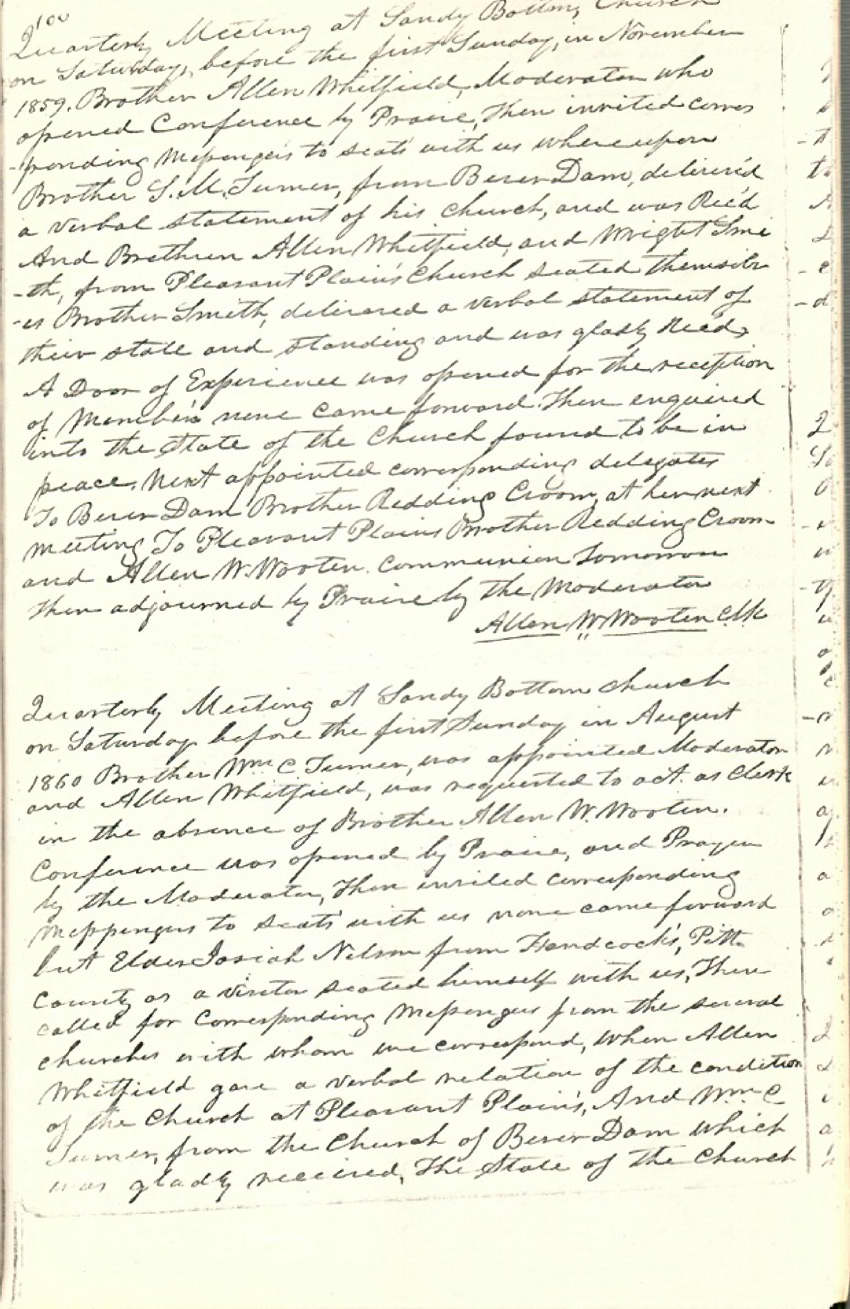 100
Quarterly Meeting at Sandy Bottom, Church
on Saturday, before the first Sunday, in November
1859. Brother Allen Whitfield, Moderator who
opened Conference by Praise, Then invited corres
-ponding Messengers to seats with us whereupon
Brother S. M. Turner, from Bever Dam, delivered
a verbal statement of his church, and was Rec'd
And Brethren Allen Whitfield, and Wright Smi
-th, from Pleasant Plain's Church seated themselv
-es Brother Smith, delivered a verbal statement of
their state and standing and was gladly Recd,
A Door of Experience was opened for the reception
of Members none came forward. Then enquired
into the State of the Church found to be in
peace. Next appointed corresponding delegates
To Bever Dam Brother Redding Croom, at her next
meeting To Pleasant Plains Brother Redding Croom
and Allen W. Wooten. Communion Tomorrow
then adjourned by Praise by the Moderator
Allen W. Wooten Clk
Quarterly Meeting at Sandy Bottom church
on Saturday before the first Sunday in August
1860 Brother Wm C. Turner, was appointed Moderator
and Allen Whitfield, was requested to act as Clerk
in the absence of Brother Allen W. Wooten.
Conference was opened by Praise, and Prayer
by the Moderator, Then invited corresponding
Messengers to seats with us none came forward
but Elder Josiah Nelson from Handcock's, Pitt
County as a visitor seated himself with us, Then
called for Corresponding Messengers from the several
churches with whom we correspond, when Allen
Whitfield gave a verbal relation of the condition
of the Church at Pleasant Plain's, And Wm C
Turner, from the Church of Bever Dam which
was gladly received, The State of the Church